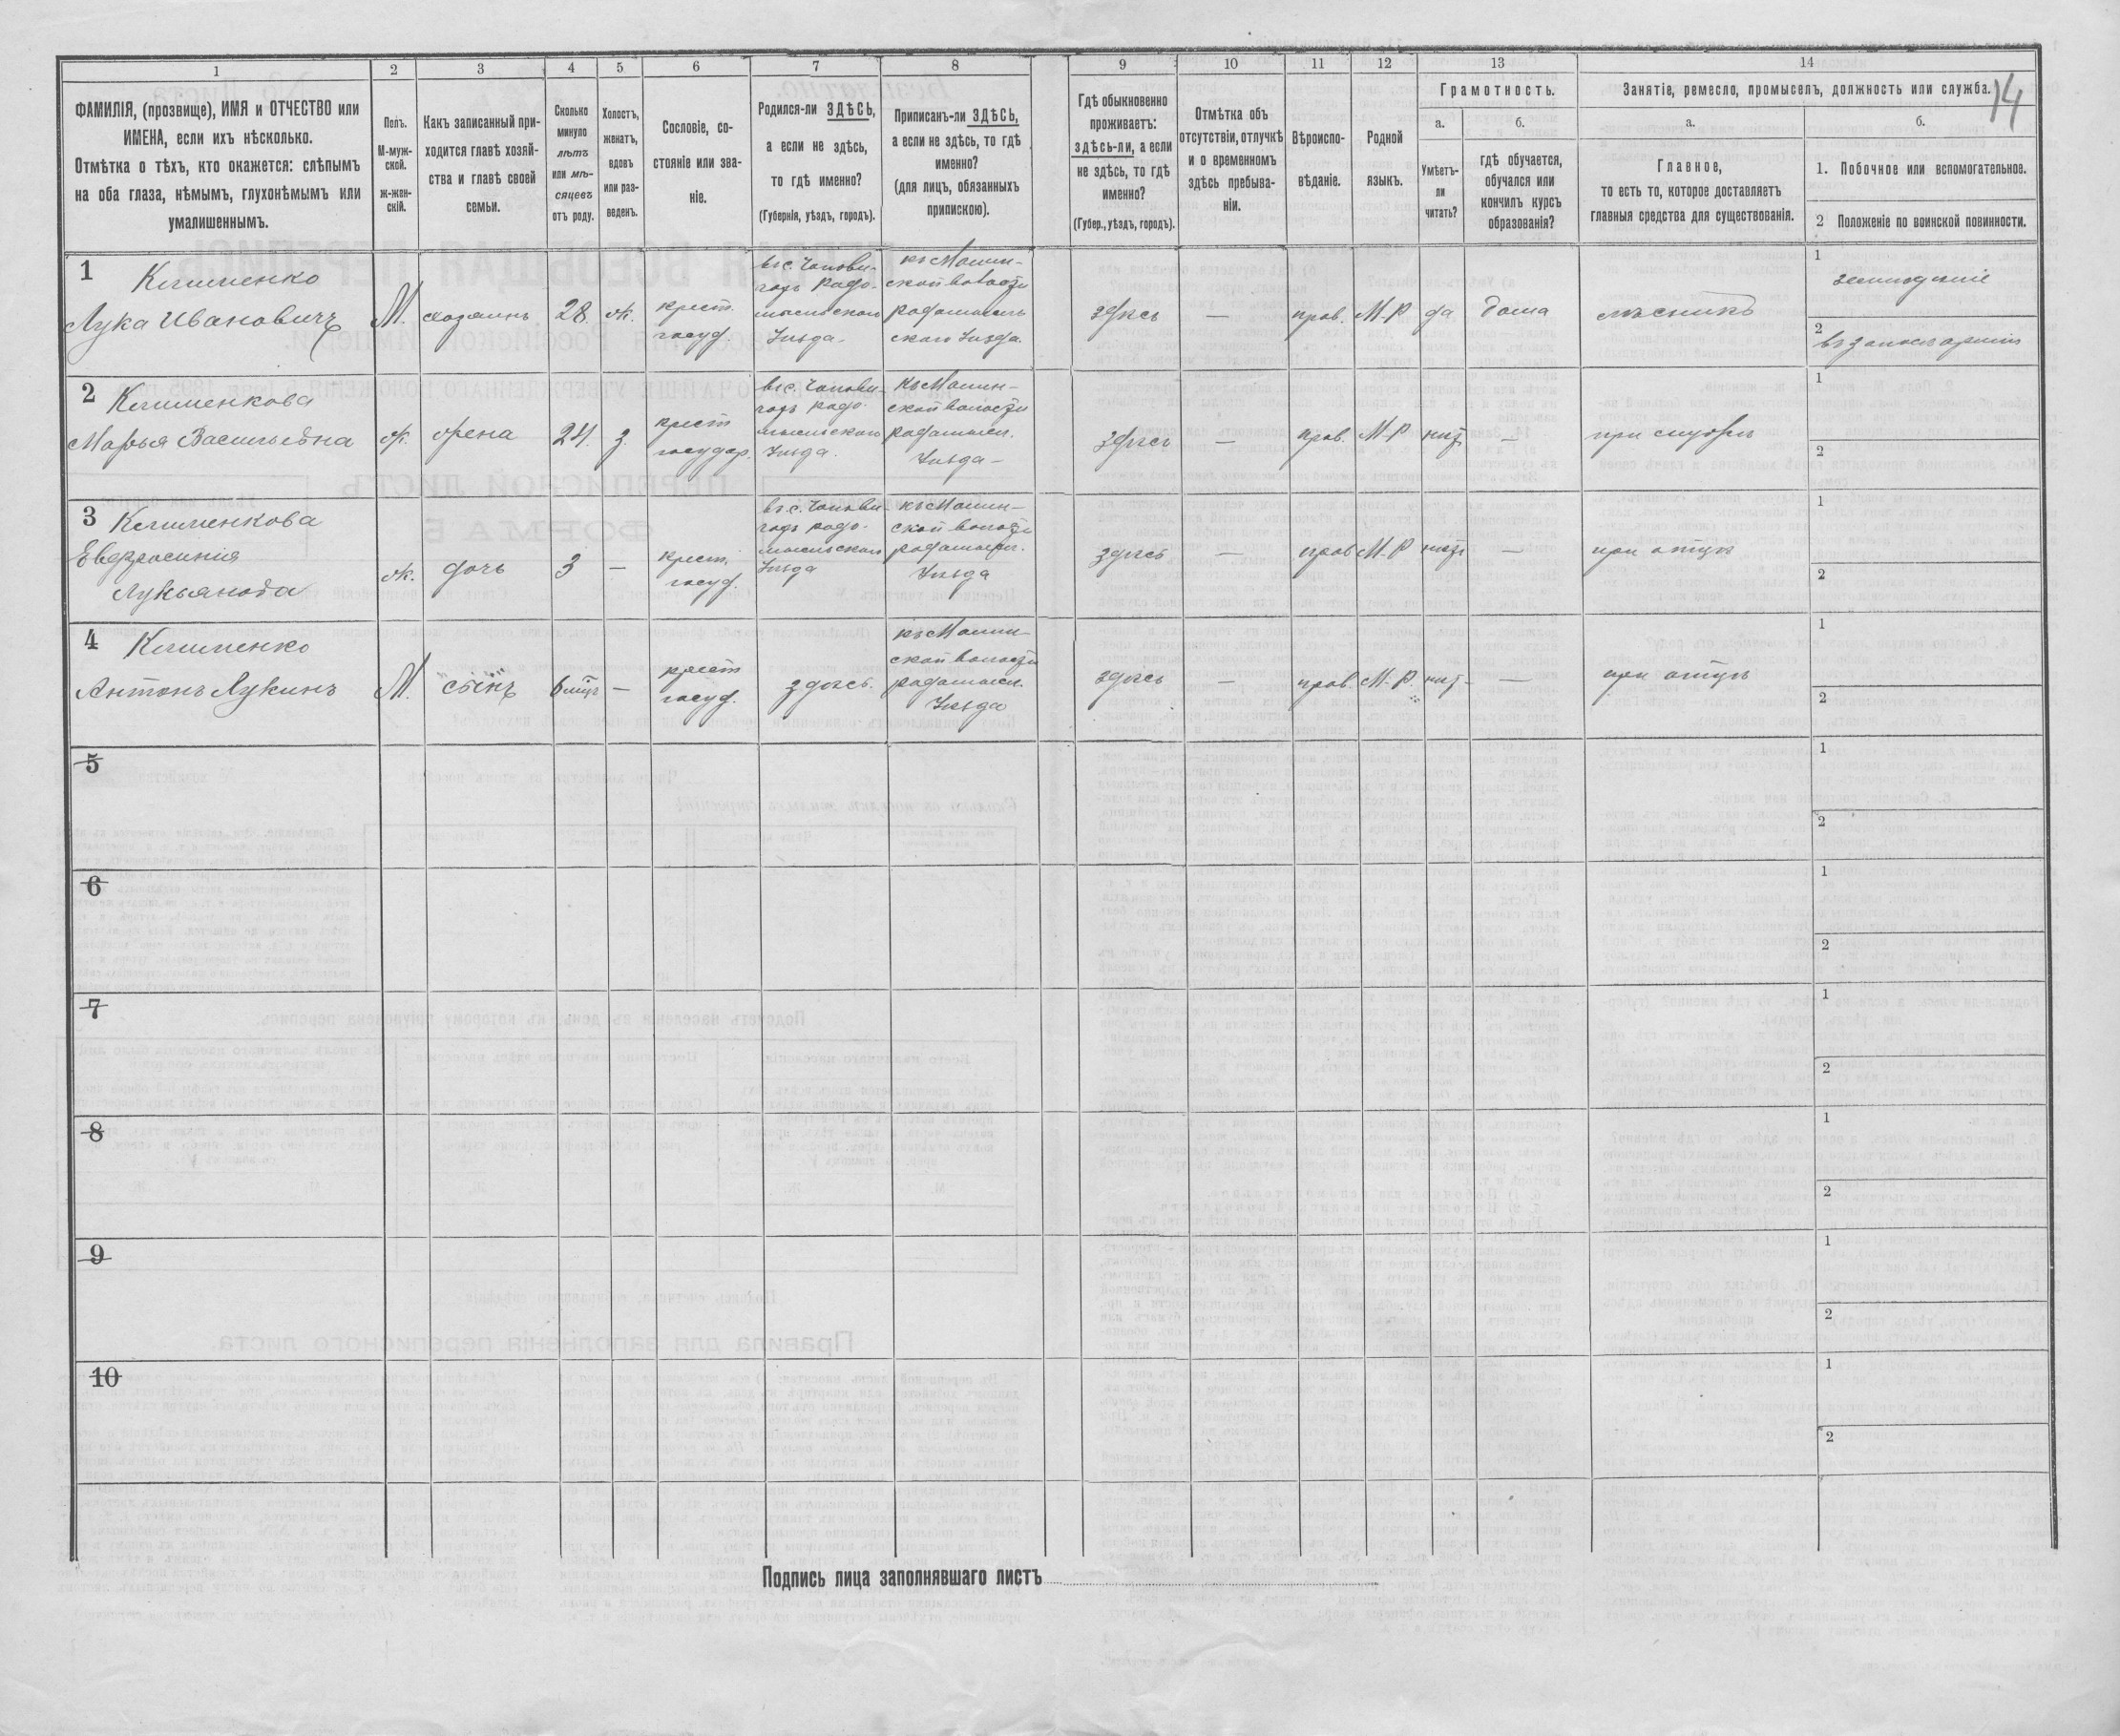 14
1 2 3 4 5 6 7 8 9 10 11 12 13 14
ФАМИЛІЯ, (прозвище), ИМЯ и ОТЧЕСТВО или
ИМЕНА, если ихъ нѣсколько.
Отмѣтка о тѣхъ, кто окажется: слѣпымъ
на оба глаза, нѣмымъ, глухонѣмымъ или
умалишеннымъ.
Полъ.
М-муж-
ской.
ж-жен-
скій.
Какъ записанный при-
ходится главѣ хозяй-
ства и главѣ своей
семьи.
Сколько
минуло
лѣтъ
или мѣ-
сяцевъ
отъ роду.
Холостъ,
женатъ,
вдовъ
или раз-
веденъ.
Сословіе, со-
стояніе или зва-
ніе.
Родился-ли ЗДѢСЬ,
а если не здѣсь,
то гдѣ именно?
(Губернія, уѣздъ, городъ).
Приписанъ-ли ЗДѢСЬ,
а если не здѣсь, то гдѣ
именно?
(для лицъ, обязанныхъ
припискою).
Гдѣ обыкновенно
проживаетъ:
здѣсь-ли, а если
не здѣсь, то гдѣ
именно?
(Губер., уѣздъ, городъ).
Отмѣтка объ
отсутствіи, отлучкѣ
и о временномъ
здѣсь пребыва-
ніи.
Вѣроиспо-
вѣданіе.
Родной
языкъ.
Грамотность.
а.
Умѣетъ-
ли
читать?
б.
гдѣ обучается,
обучался или
кончилъ курсъ
образованія?
Занятіе, ремесло, промыселъ, должность или служба.
а.
Главное,
то есть то, которое доставляетъ
главныя средства для существованія.
б.
1. Побочное или вспомогательное.
2 Положеніе по воинской повинности.
1
Клименко
Лука Ивановичъ
М.
хозяинъ
28.
ж.
крест.
госуд.
въ с. Чопови-
чахъ Радо-
мысльскаго
Уѣзда.
къ Малин-
ской волости
радомысль
скаго Уѣзда.
здѣсь
—
прав.
М-Р
да
дома
лѣсникъ
1
земледѣліе
2
въ запасѣ арміи
2
Клименкова
Марья Васильевна
ж.
жена
24.
з.
крест
государ.
въ с. Чопови-
чахъ радо-
мысльскаго
Уѣзда.
къ Малин-
ской волости
радомысл.
Уѣзда —
здѣсь
—
прав.
М-Р
нѣтъ
—
при мужѣ
1
2
3
Клименкова
Евфросинія
Лукьянова
ж.
дочь
3
—
крест.
госуд.
въ с. Чопови-
чахъ радо-
мысльскаго
Уѣзда
къ Малин-
ской волости
радомысл.
Уѣзда
здѣсь
—
прав
М-Р
нѣтъ
—
при отцѣ
1
2
4
Клименко
Антонъ Лукинъ
М.
сынъ
6 мѣц
—
крест
госуд.
здѣсь.
къ Малин-
ской волости
радомысл.
Уѣзда
здѣсь
—
прав.
М-Р.
нѣт
—
при отцѣ
1
2
5
1
2
6
1
2
7
1
2
8
1
2
9
1
2
10
1
2
Подпись лица заполнявшаго листъ